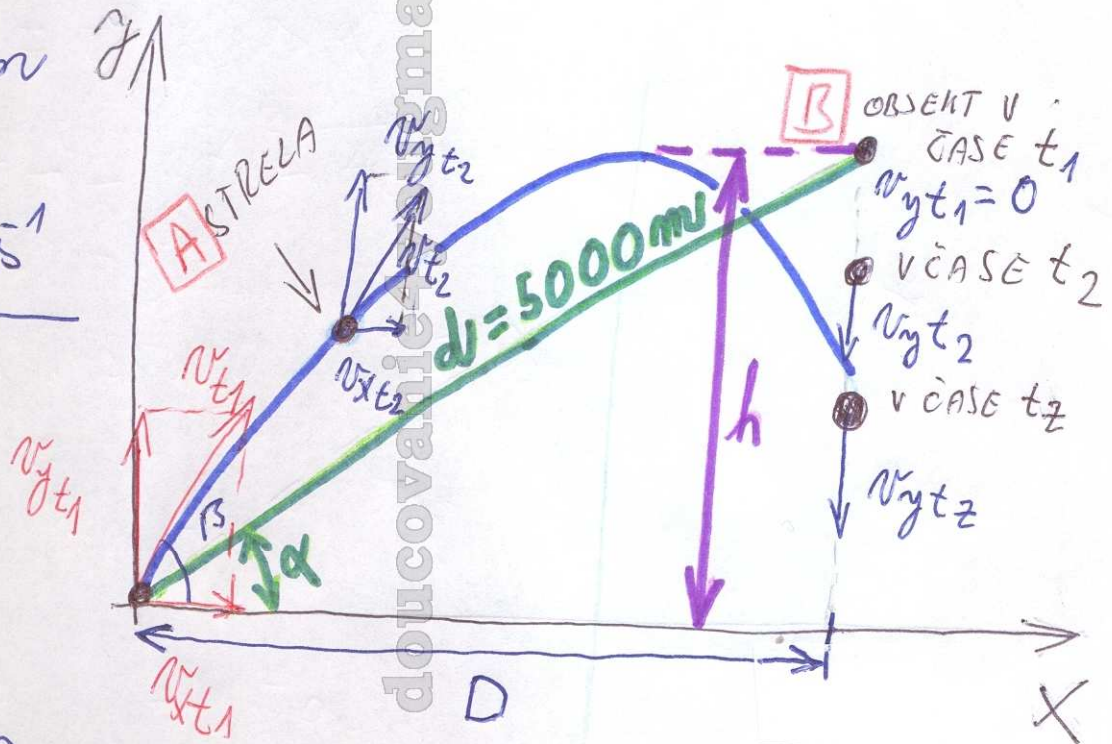 y
A STRELA
v_yt2
v_t2
v_xt2
v_t1
v_yt1
v_xt1
β
α
d = 5000 m
h
D
X
B
OBJEKT V
ČASE t1
v_yt1 = 0
V ČASE t2
v_yt2
V ČASE tz
v_ytz
s⁻¹
doucovanie